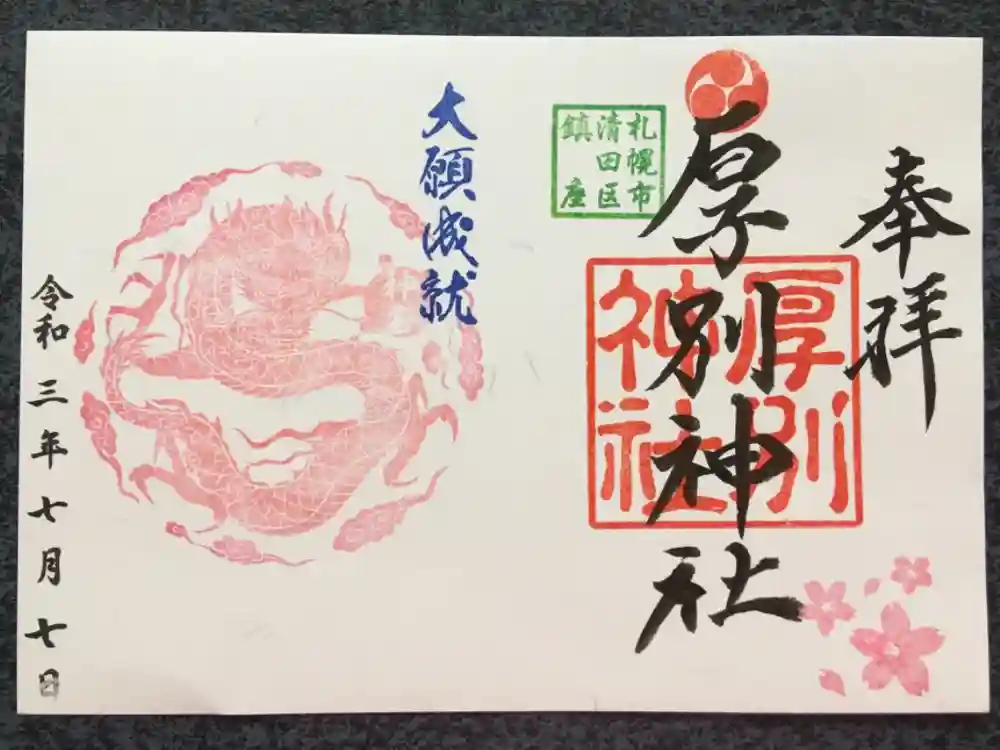 奉拝
厚別神社
厚別
神社
札幌市
清田区
鎮座
大願成就
令和三年七月七日